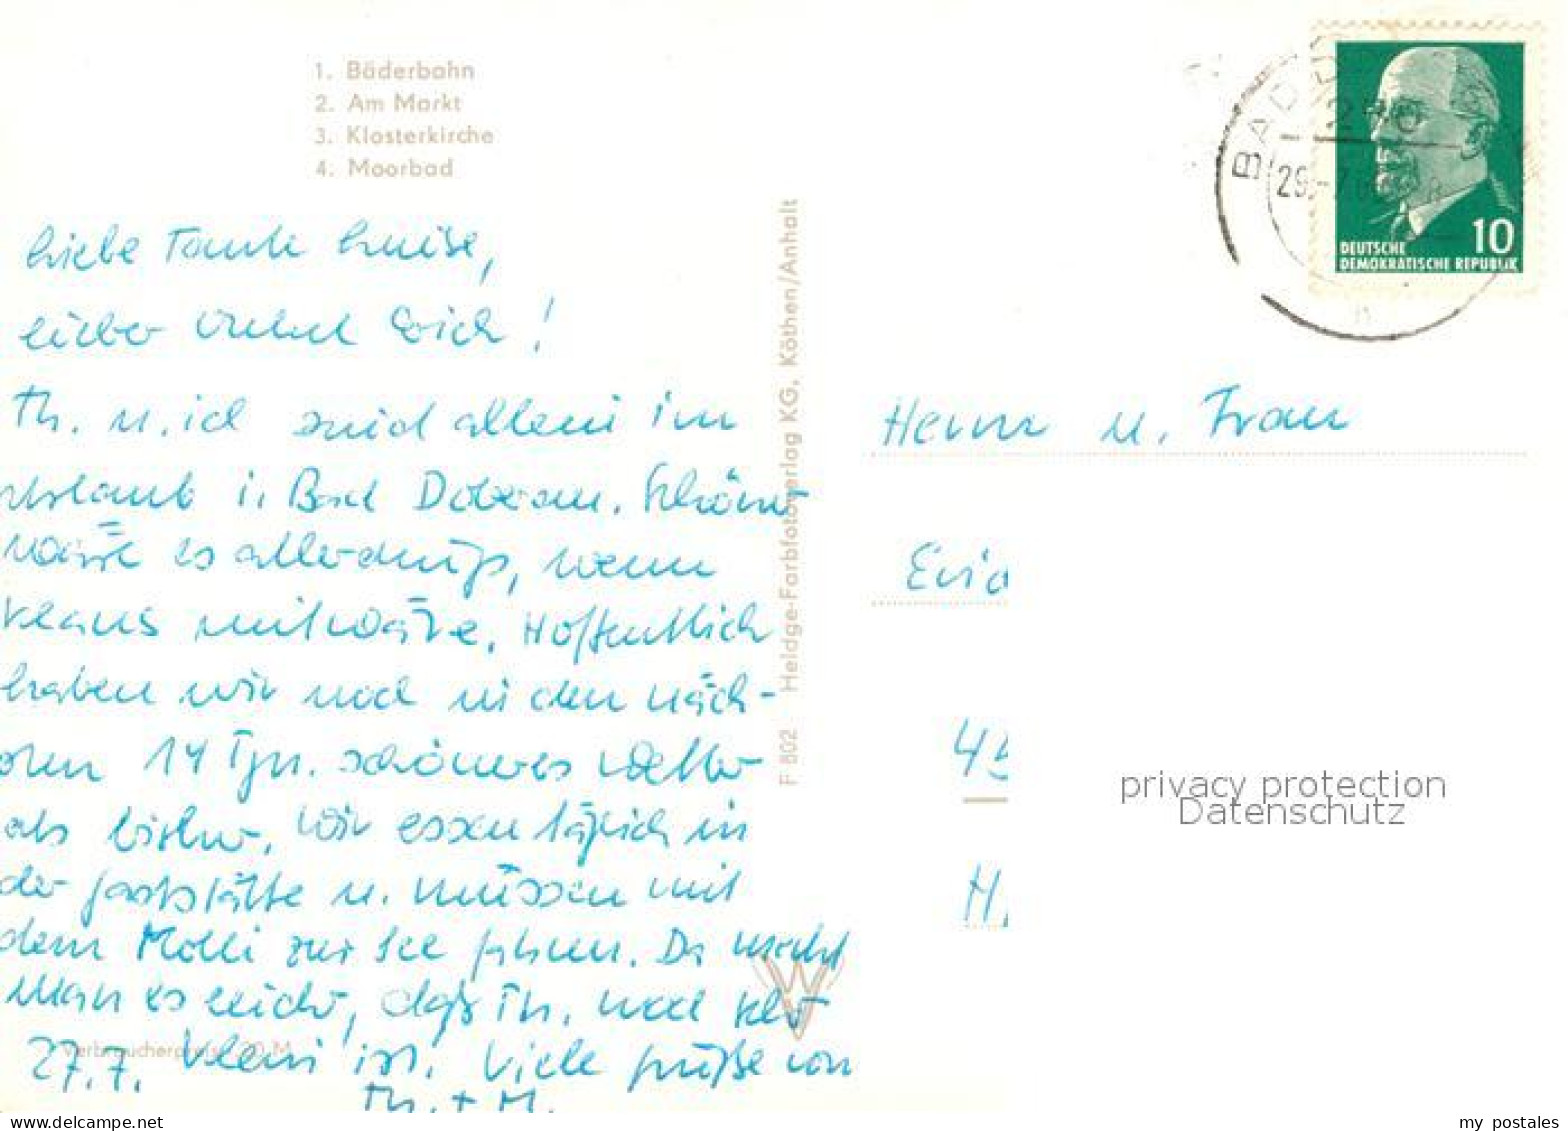 1. Bäderbahn
2. Am Markt
3. Klosterkirche
4. Moorbad
Liebe Tante Luise,
lieber Onkel Erich!
Th. u. ich sind allein im
Urlaub i. Bad Doberan. Schöner
wäre es allerdings, wenn
Klaus mitwäre. Hoffentlich
haben wir noch in den näch-
sten 14 Tgn. schöneres Wetter
als bisher. Wir essen täglich in
der Gaststätte u. müssen mit
dem Molli zur See fahren. Da merkt
man es leider, daß Th. noch sehr
27.7. klein ist. Viele Grüße von
Th. + M.
Verbraucherpreis 20 M
F 802 Heldge-Farbfotoverlag KG, Köthen/Anhalt
BAD D
29.-7.6
10
DEUTSCHE
DEMOKRATISCHE REPUBLIK
Herrn u. Frau
Eric
45
H.
privacy protection
Datenschutz
my postales